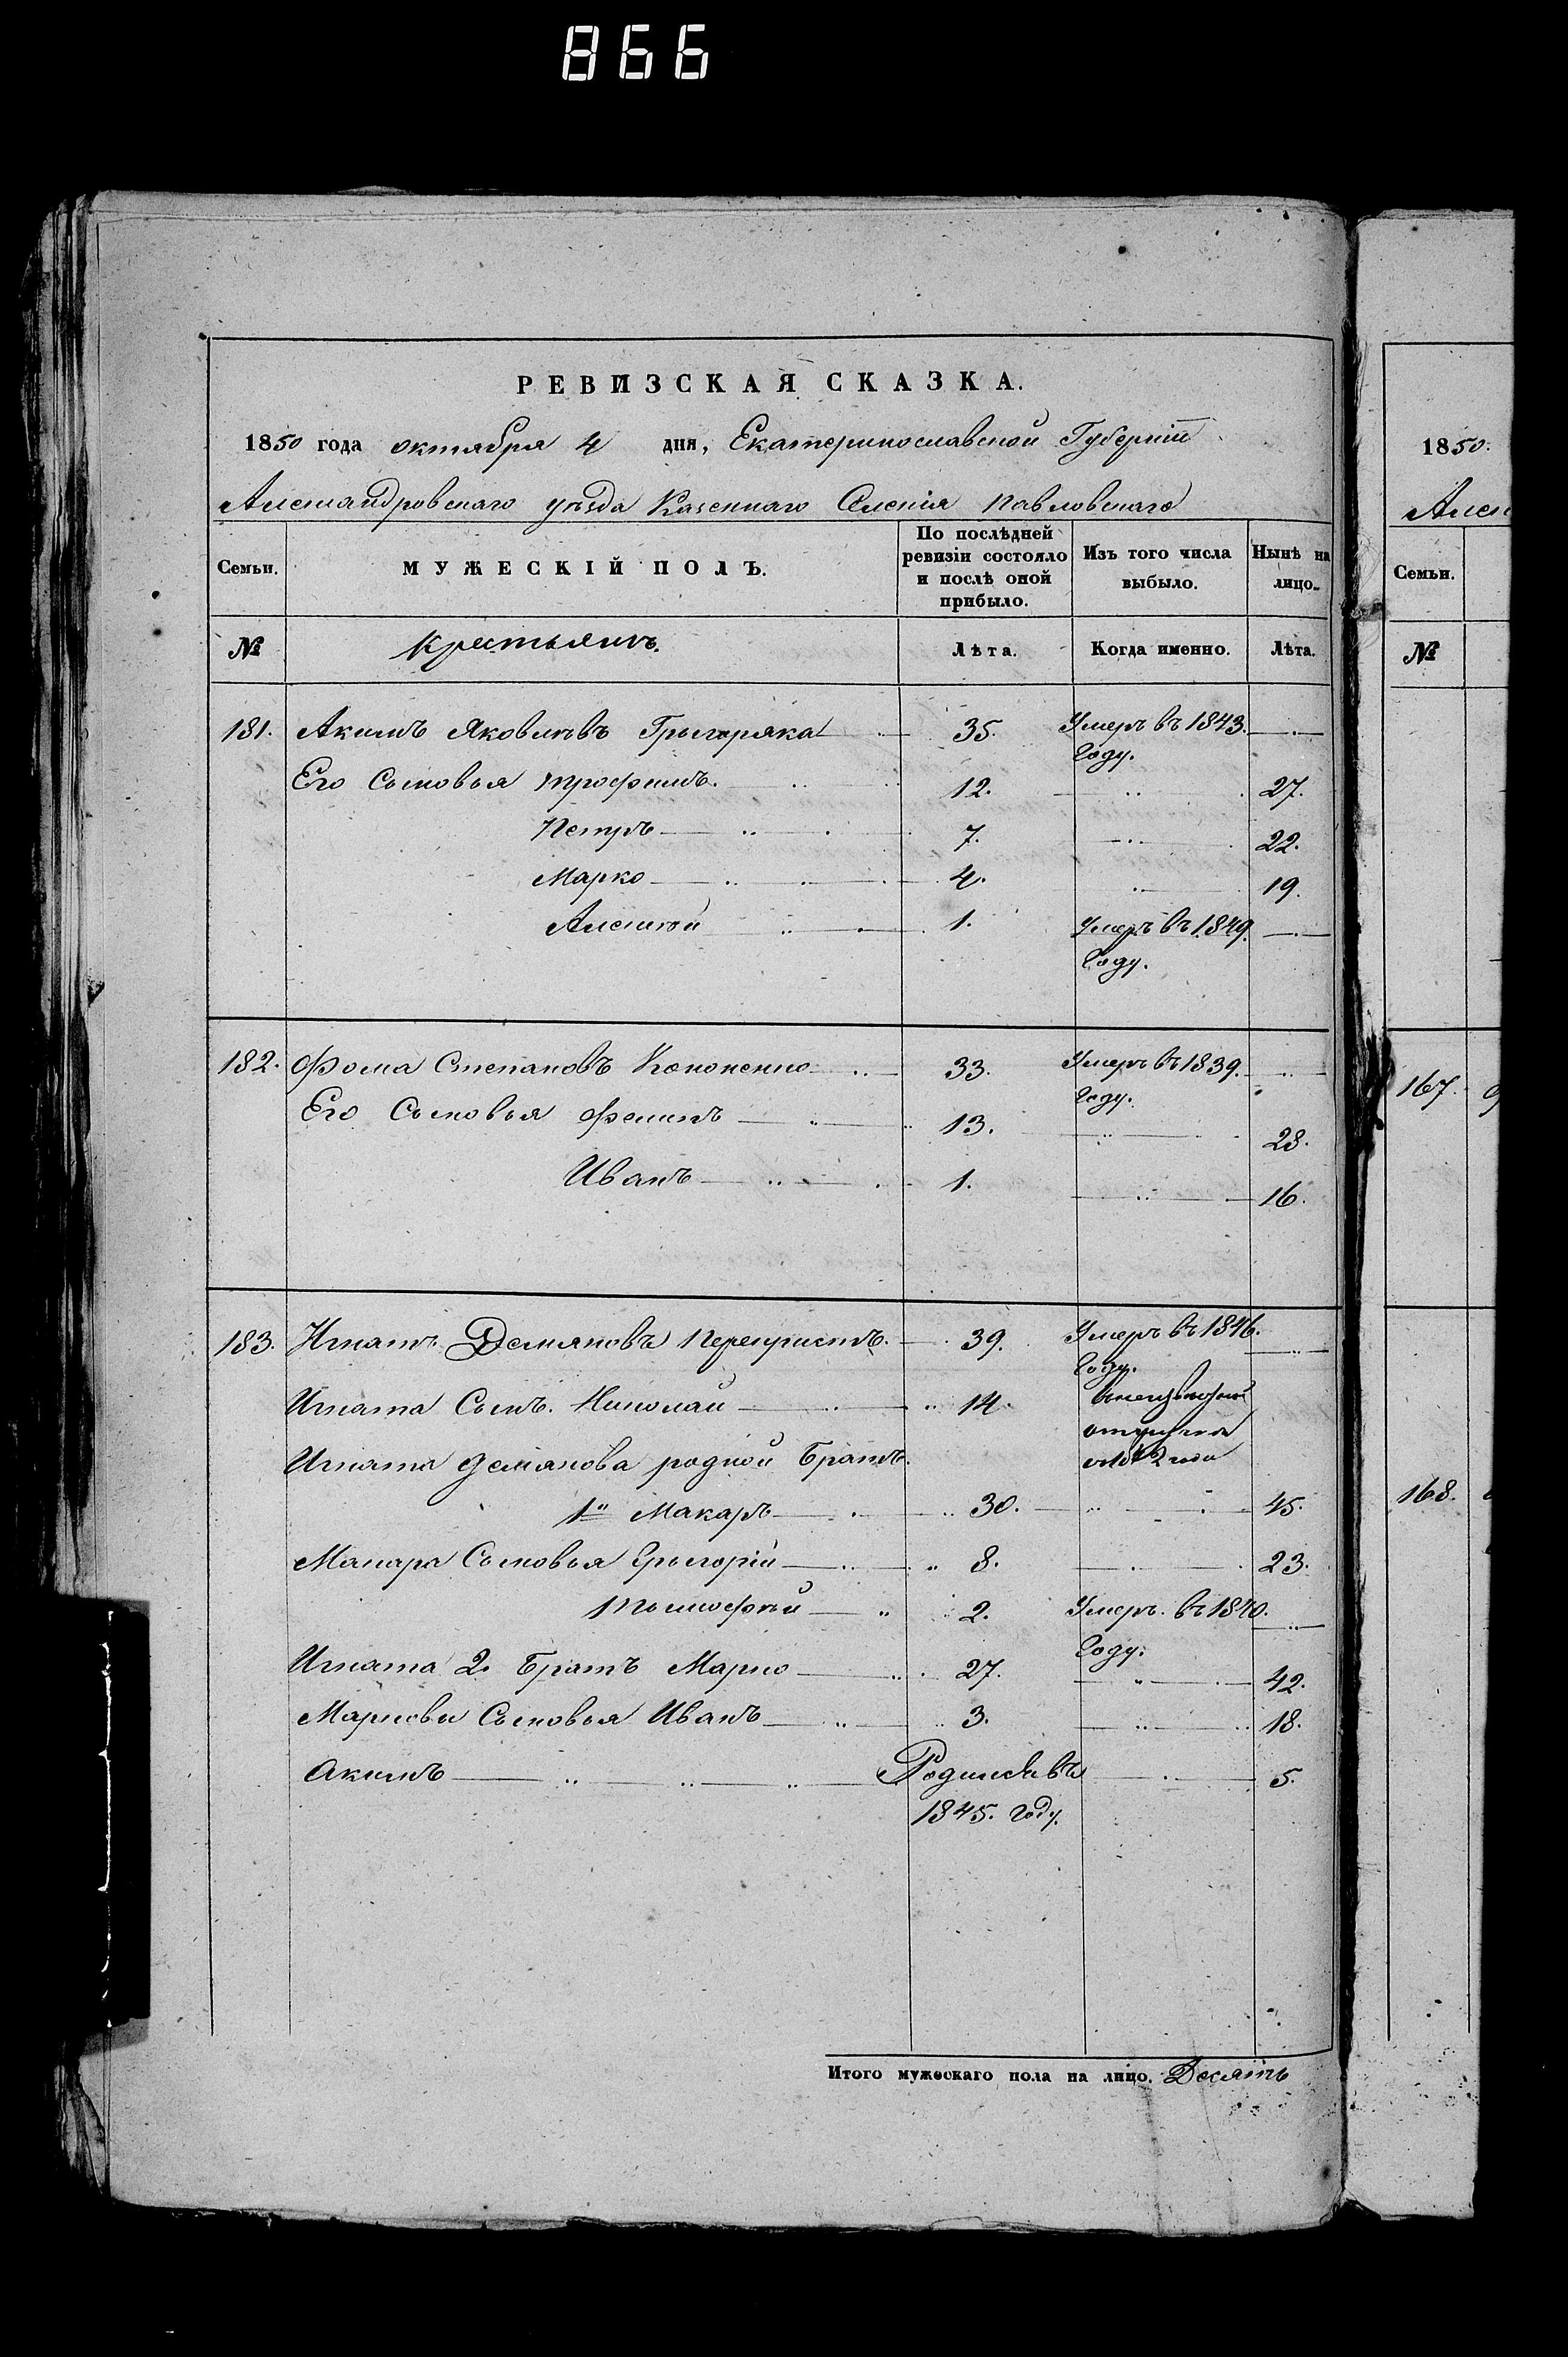 866
РЕВИЗСКАЯ СКАЗКА.
1850 года октября 4 дня, Екатеринославской Губерніи
Александровскаго уѣзда Казеннаго Селенія Павловскаго
Семьи.
МУЖЕСКІЙ ПОЛЪ.
По послѣдней ревизіи состояло и послѣ оной прибыло.
Изъ того числа выбыло.
Нынѣ на лицо.
№ крестьянъ. Лѣта. Когда именно. Лѣта.
181. Акимъ Яковлѣвъ Грыгоряка 35. Умеръ въ 1843.
Году.
Его Сыновья Трофимъ. 12. 27.
Петръ 7. 22.
Марко 4. 19.
Алексѣй 1. Умеръ въ 1849.
Году.
182. Фома Степановъ Кононенко 33. Умеръ въ 1839.
Году.
Его Сыновья Филипъ 13. 28.
Иванъ 1. 16.
183. Игнатъ Демяновъ 39. Умеръ въ 1846.
Году.
Игната Сынъ. Николай 14.
съ 1842 года
Игната Демянова родной Братъ.
1й Макаръ 30. 45.
Макара Сыновья Грыгорій 8. 23.
Тымофѣй 2. Умеръ. въ 1840.
Году.
Игната 2. Братъ Марко 27. 42.
Маркова Сыновья Иванъ 3. 18.
Акимъ Родился въ 5.
1845. Году.
Итого мужескаго пола на лицо. Десять
1850.
Алек
Семьи.
№
167.
168.